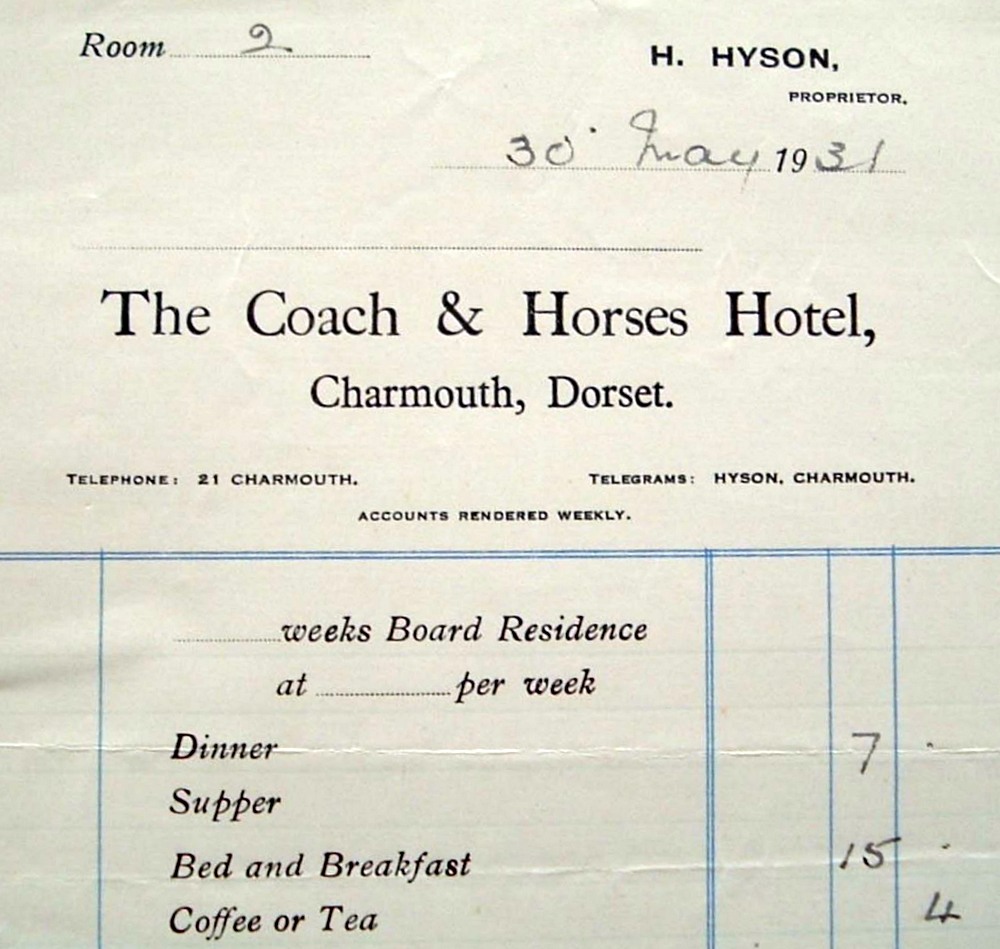 Room 2
H. HYSON,
PROPRIETOR.
30 May 1931
The Coach & Horses Hotel,
Charmouth, Dorset.
TELEPHONE: 21 CHARMOUTH. TELEGRAMS: HYSON, CHARMOUTH.
ACCOUNTS RENDERED WEEKLY.
weeks Board Residence
at per week
Dinner 7 .
Supper
Bed and Breakfast 15 .
Coffee or Tea 4